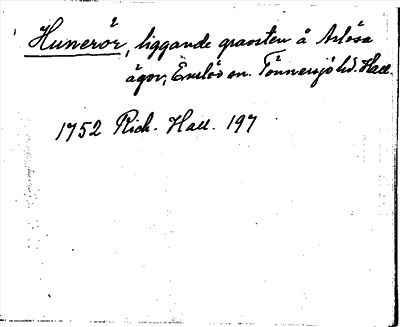 Hunerör, liggande gravsten å Årlösa
ägor, Enslöv sn. Tönnersjö hd. Hall.
1752 Rich. Hall. 197